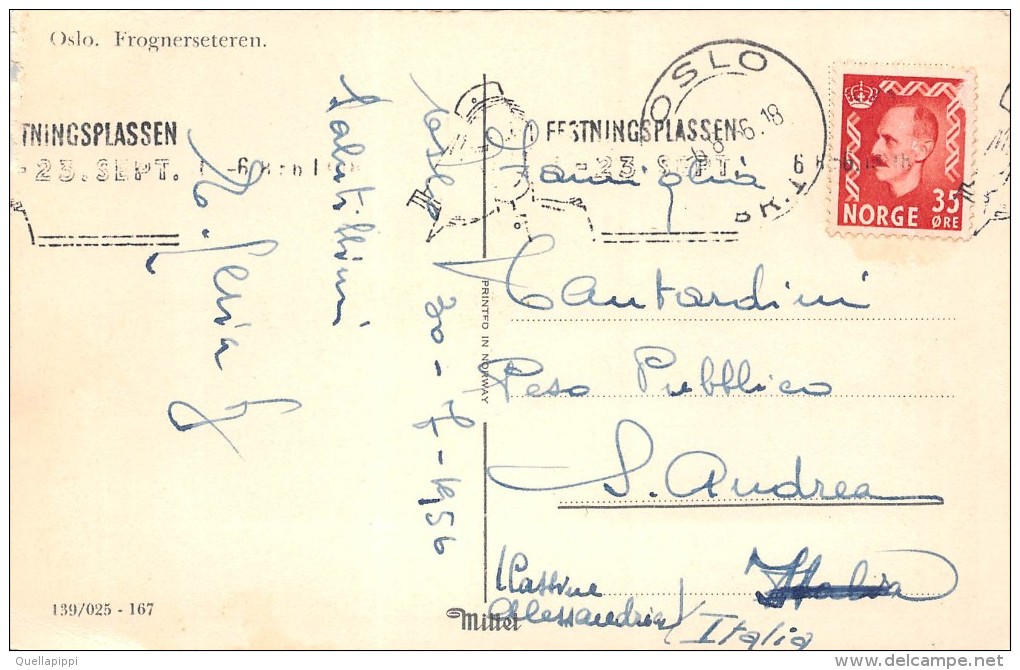 Oslo. Frognerseteren.
TNINGSPLASSEN
-23.SEPT.
FESTNINGSPLASSEN
-23. SEPT.
OSLO
BR.1
6.18
35
NORGE ØRE
30-7-1956
Saluti
PRINTED IN NORWAY
Famiglia
Cantardini
Peso Pubblico
S. Andrea
Italia
Cassine
Alessandria/
Italia
139/025 - 167
Mittet
Quellapippi
delcampe.net